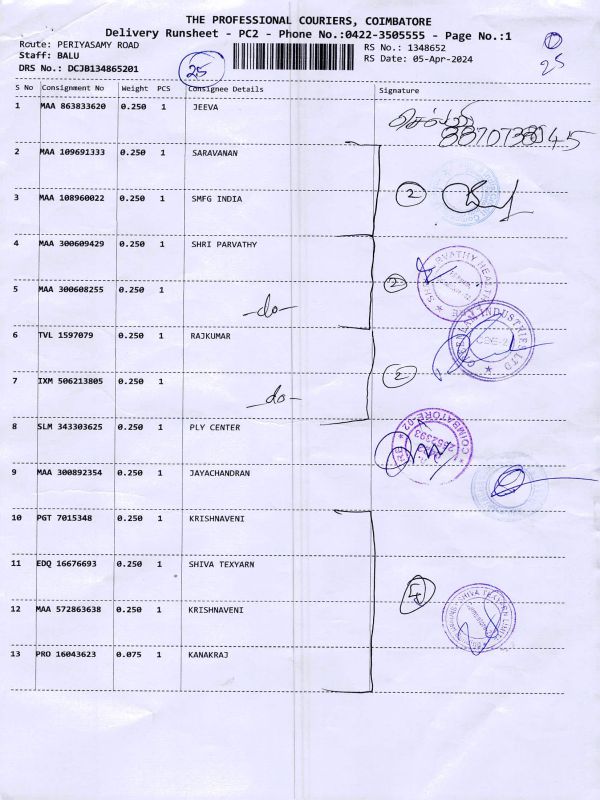 THE PROFESSIONAL COURIERS, COIMBATORE
Delivery Runsheet - PC2 - Phone No.:0422-3505555 - Page No.:1
Route: PERIYASAMY ROAD
RS No.: 1348652
Staff: BALU
25
RS Date: 05-Apr-2024
25
DRS No.: DCJB134865201
S No Consignment No Weight PCS Consignee Details Signature
1 MAA 863833620 0.250 1 JEEVA
2 MAA 109691333 0.250 1 SARAVANAN
3 MAA 108960022 0.250 1 SMFG INDIA 2
4 MAA 300609429 0.250 1 SHRI PARVATHY
5 MAA 300608255 0.250 1 -do- 2
6 TVL 1597079 0.250 1 RAJKUMAR
7 IXM 506213805 0.250 1 -do- 2
8 SLM 343303625 0.250 1 PLY CENTER
COIMBATORE-02
9 MAA 300892354 0.250 1 JAYACHANDRAN
10 PGT 7015348 0.250 1 KRISHNAVENI
11 EDQ 16676693 0.250 1 SHIVA TEXYARN
12 MAA 572863638 0.250 1 KRISHNAVENI
SHIVA TEXYARN
13 PRO 16043623 0.075 1 KANAKRAJ